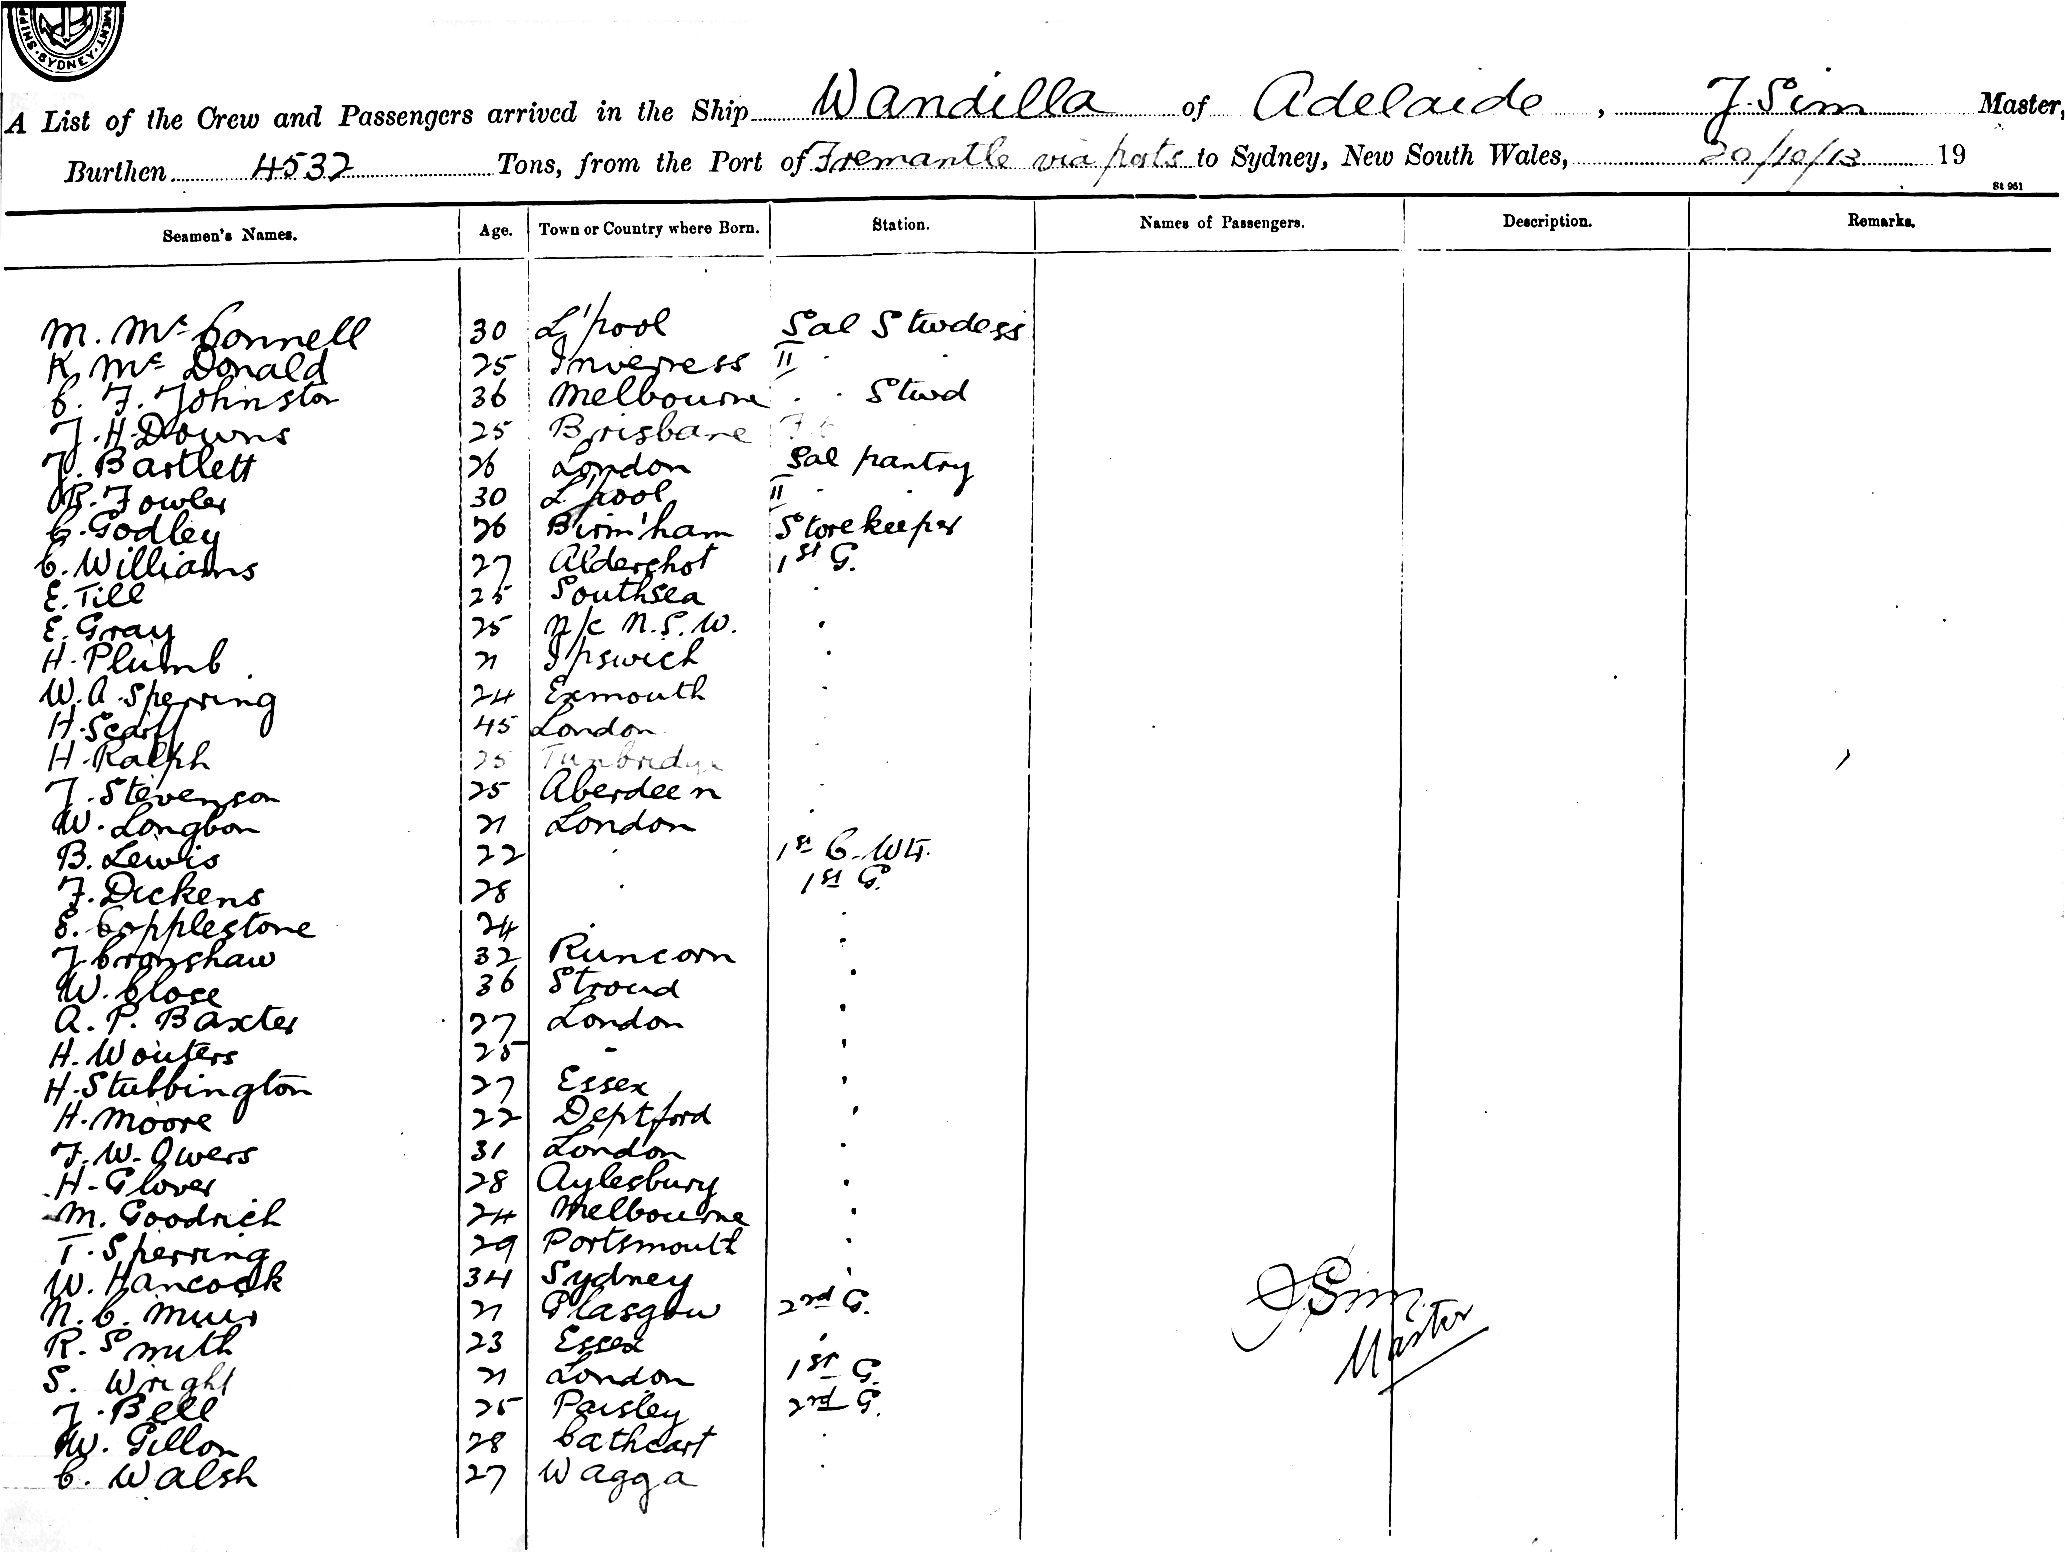 SYDNEY
A List of the Crew and Passengers arrived in the Ship Wandilla of Adelaide, J. Sim Master,
Burthen 4532 Tons, from the Port of Fremantle via ports to Sydney, New South Wales, 20/10/13 19
St 951
Seamen's Names. Age. Town or Country where Born. Station. Names of Passengers. Description. Remarks.
M. McConnell 30 L'pool Sal Stwdess
K. McDonald 25 Inverness "
C. F. Johnston 36 Melbourne . . Stwd
J. H. Downs 25 Brisbane
J. Bartlett 26 London Sal pantry
R. Fowler 30 L'pool " . .
G. Godley 26 Birm'ham Storekeeper
C. Williams 27 Aldershot 1st G.
E. Till 25 Southsea .
E. Gray 25 N/c N.S.W. .
H. Plumb 21 Ipswich .
W. A. Sperring 24 Exmouth .
H. Scarff 45 London .
H. Ralph 25 Tunbridge .
J. Stevenson 25 Aberdeen .
W. Longbon 21 London .
B. Lewis 22 . 1st C. Wtr.
F. Dickens 28 . 1st G.
S. Copplestone 24 . .
J. Cronshaw 32 Runcorn .
W. Close 36 Stroud .
A. P. Baxter 27 London .
H. Wouters 25 - .
H. Stubbington 27 Essex .
H. Moore 22 Deptford .
F. W. Owers 31 London .
H. Glover 28 Aylesbury .
M. Goodrich 24 Melbourne .
T. Sperring 29 Portsmouth .
W. Hancock 34 Sydney .
N. C. Muir 21 Glasgow 2nd G.
R. Smith 23 Essex .
S. Wright 21 London 1st G.
J. Bell 25 Paisley 2nd G.
W. Gillon 28 Cathcart .
C. Walsh 27 Wagga .
J Sim
Master